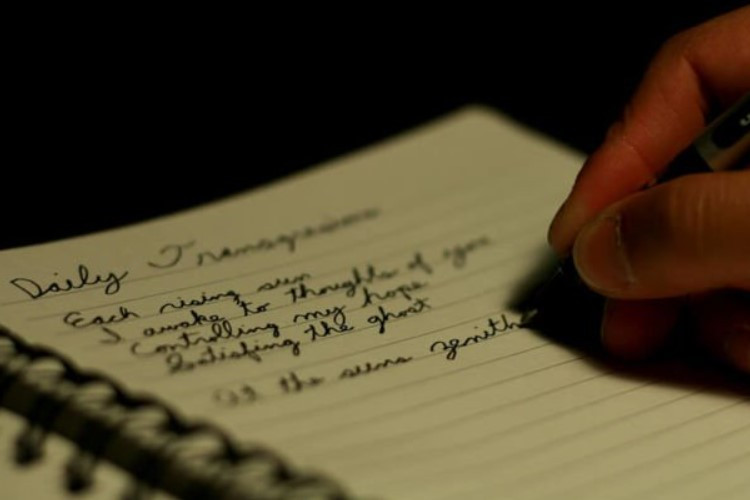 Daily Transgressions
Each rising sun
I awake to thoughts of you
Controlling my hope
Satisfing the ghost
At the suns zenith